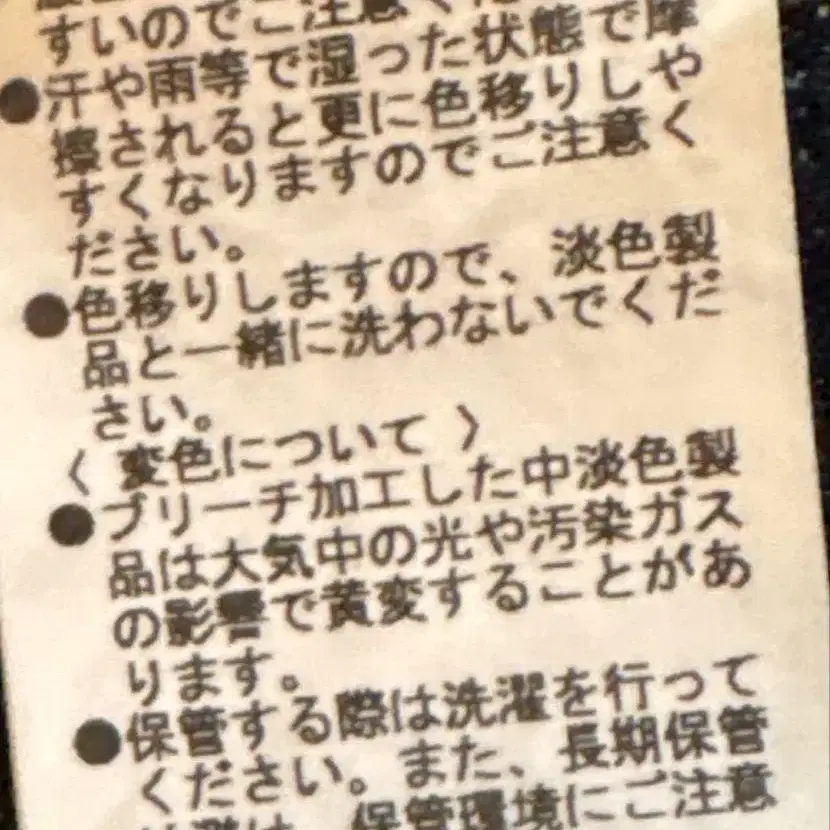 すいのでご注意くだ
●汗や雨等で湿った状態で摩
擦されると更に色移りしや
すくなりますのでご注意く
ださい。
●色移りしますので、淡色製
品と一緒に洗わないでくだ
さい。
〈 変色について 〉
●ブリーチ加工した中淡色製
品は大気中の光や汚染ガス
の影響で黄変することがあ
ります。
●保管する際は洗濯を行って
ください。また、長期保管
は避け、保管環境にご注意